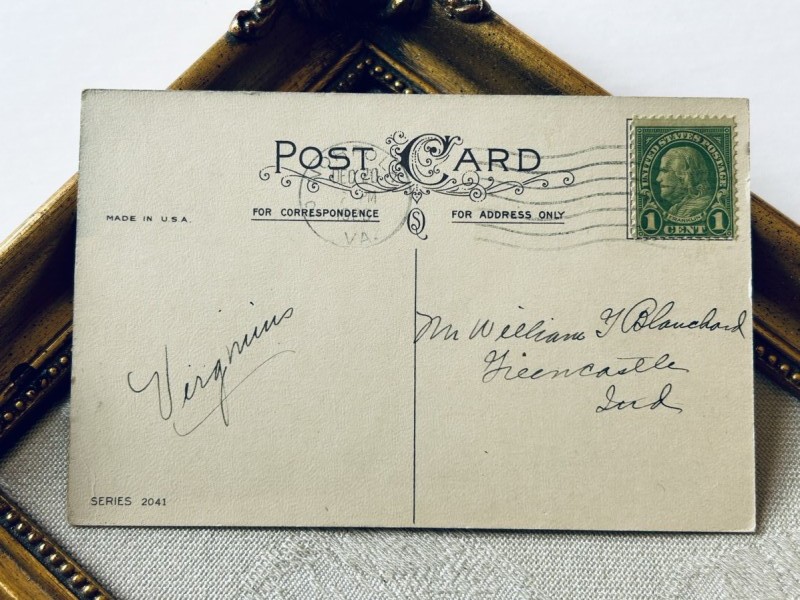 POST CARD
DEC
VA.
MADE IN U.S.A.
FOR CORRESPONDENCE
FOR ADDRESS ONLY
UNITED STATES POSTAGE
FRANKLIN
1 CENT 1
Virginius
Mr William T Blanchard
Greencastle
Ind
SERIES 2041